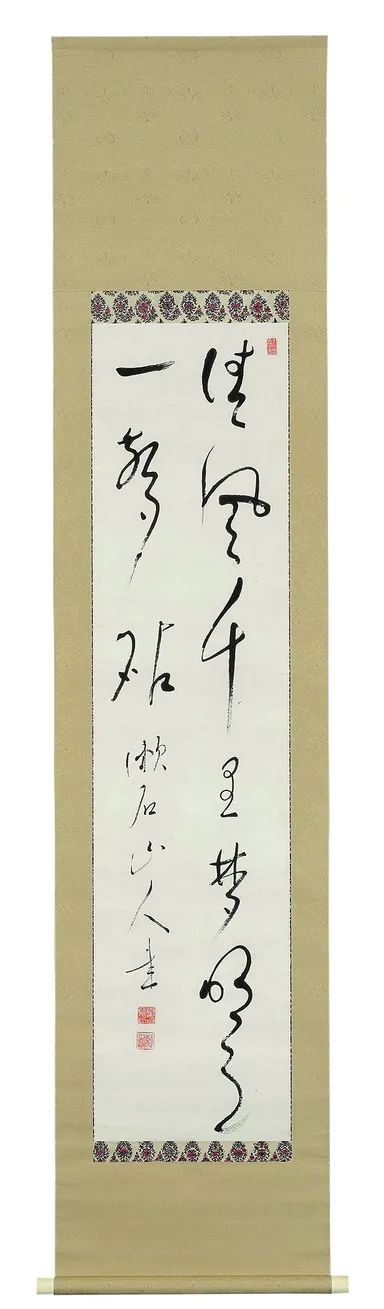 清風千里夢明月
一聲砧 漱石山人書